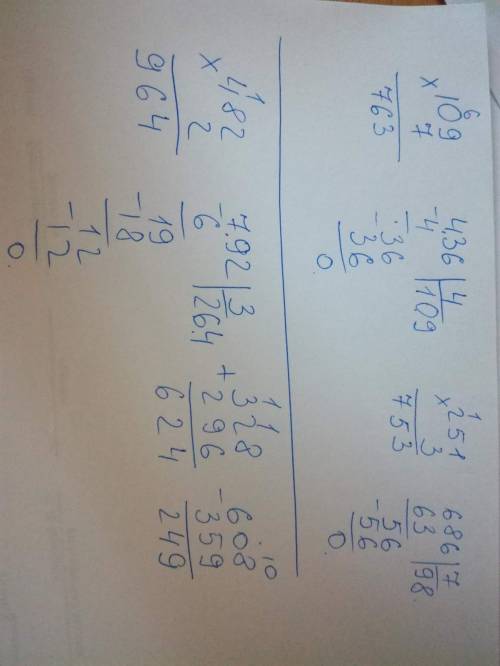 6
×109
7
763
-4.36 | 4
4 | 109
-36
36
0.
1
×251
3
753
686 | 7
63 | 98.
-56
56
0.
1
×482
2
964
-7.92 | 3
6 | 264
-19
18
-12
12
0.
1 1
+328
296
624
. 10
-608
359
249